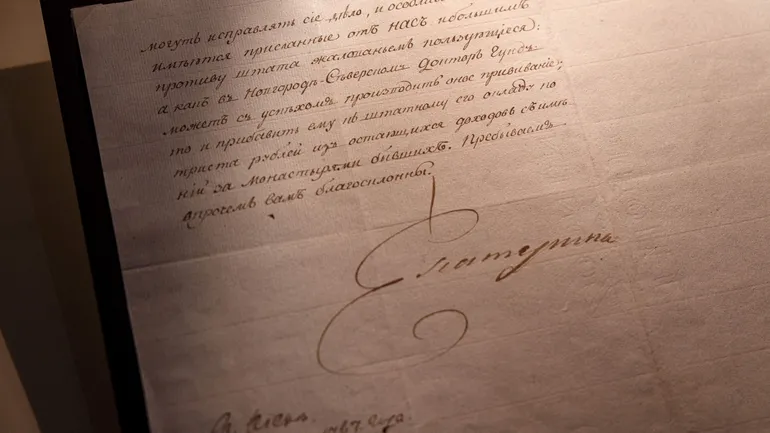 могутъ исправлять сіе дѣло, и особливо
имѣются присланные отъ НАСЪ избольшимъ
противу штата жалованьемъ пользующіеся:
а какъ въ Новгородѣ-Сѣверскомъ Докторъ Гунъ
можетъ съ успѣхомъ производить оное прививаніе;
то и прибавить ему къ штатному его окладу по
триста рублей изъ остающихся доходовъ съ имѣ
ній за монастырями бывшихъ. Пребываемъ
впрочемъ вамъ благосклонны.
Екатерина